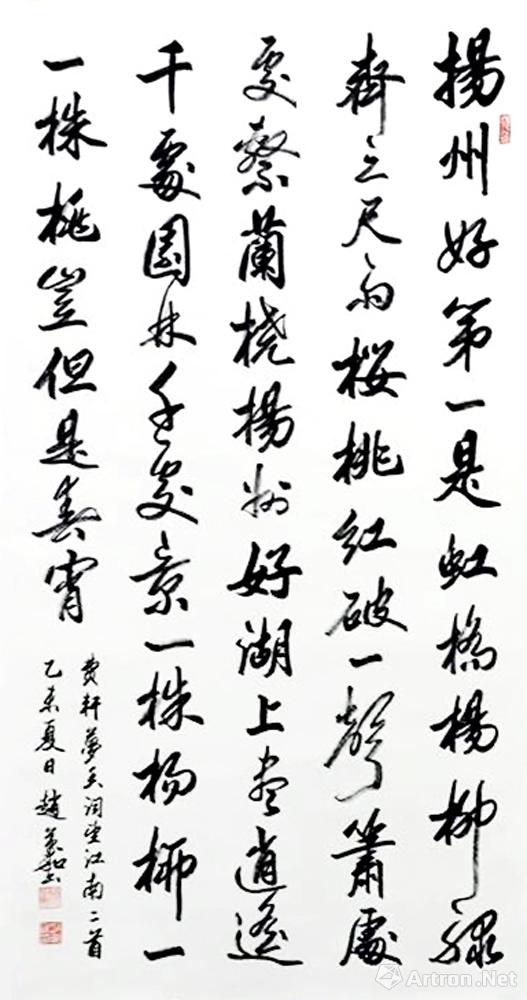 揚州好第一是虹橋楊柳綠
齊三尺雨桜桃紅破一聲簫處
處繫蘭橈揚州好湖上盡逍遙
千處園林千處景一株杨柳一
一株桃豈但是春宵
費軒夢香詞望江南二首
乙未夏日趙
Artron.Net